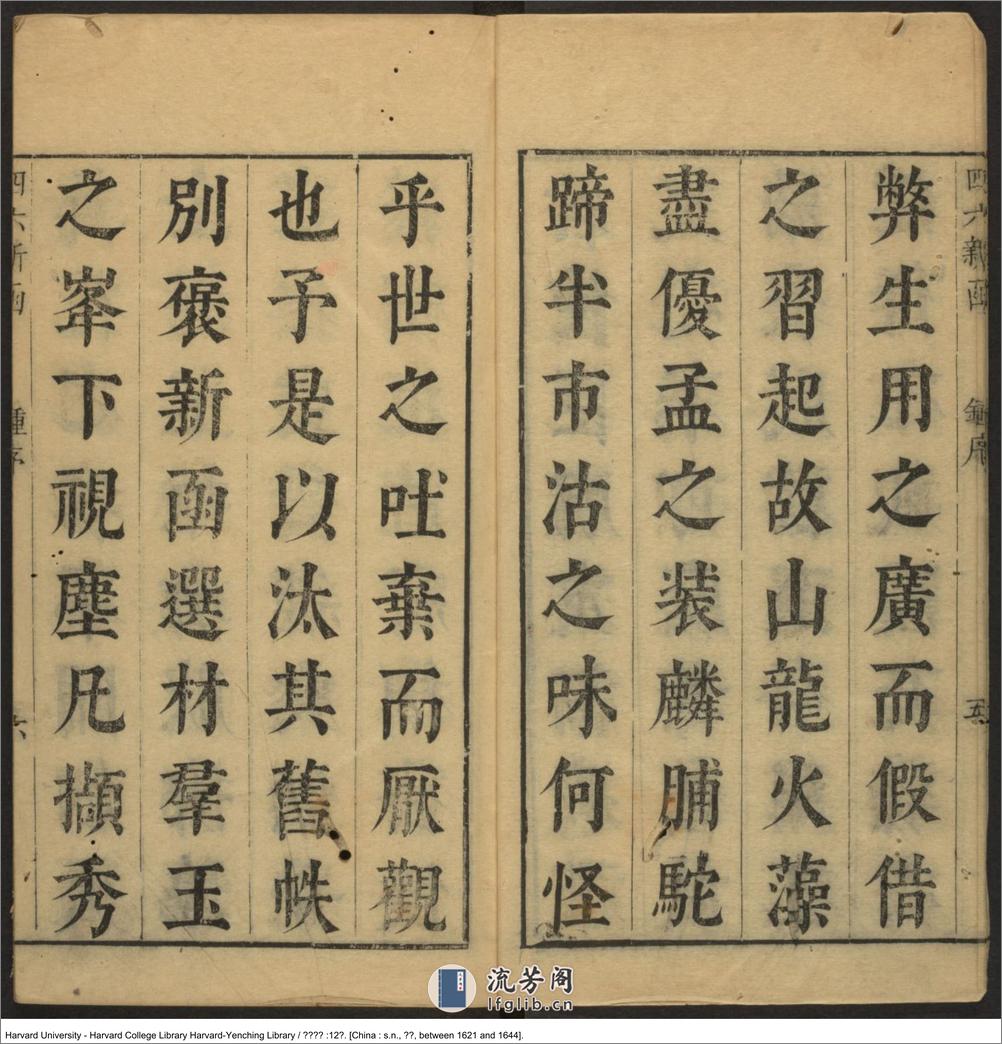 四六新函 鍾序 五
弊生用之廣而假借
之習起故山龍火藻
盡優孟之装麟脯駝
蹄半市沽之味何怪
乎世之吐棄而厭觀
也予是以汰其舊帙
別裒新函選材羣玉
之峯下視塵凡擷秀
四六新函 鍾序 六
流芳阁
lfglib.cn
Harvard University - Harvard College Library Harvard-Yenching Library / ???? :12?. [China : s.n., ??, between 1621 and 1644].